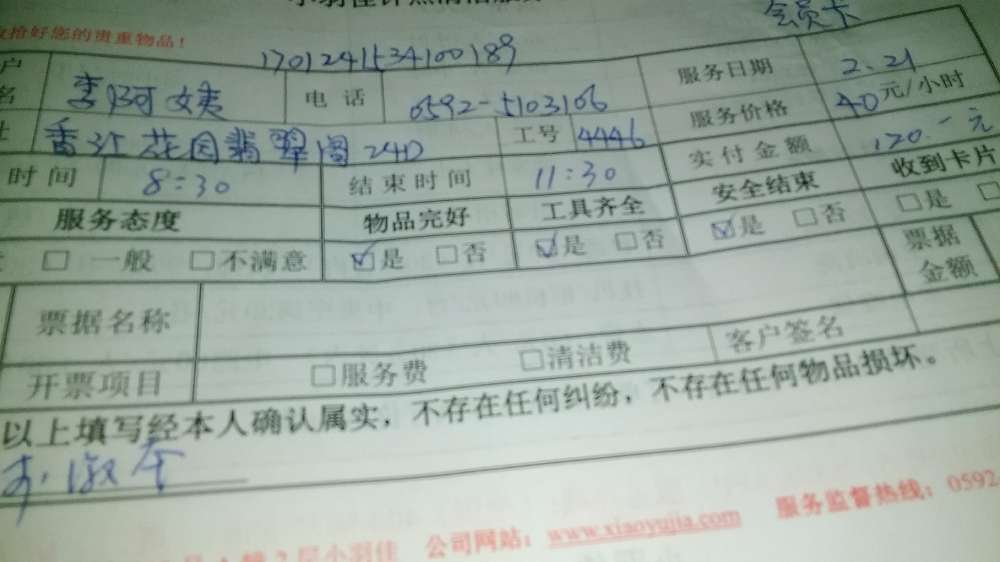 小羽佳钟点清洁服务
收拾好您的贵重物品！ 会员卡
户 170124153410 0189 服务日期 2.21
名 李阿姨 电话 0592-5103106 服务价格 40元/小时
香江花园翡翠阁24D 工号 4446 实付金额 120.-元
时间 8:30 结束时间 11:30 安全结束 收到卡片
服务态度 物品完好 工具齐全 ☑是 □否 □是
□一般 □不满意 ☑是 □否 ☑是 □否 票据金额
票据名称
开票项目 □服务费 □清洁费 客户签名
以上填写经本人确认属实，不存在任何纠纷，不存在任何物品损坏。
2层小羽佳 公司网站：www.xiaoyujia.com 服务监督热线：0592